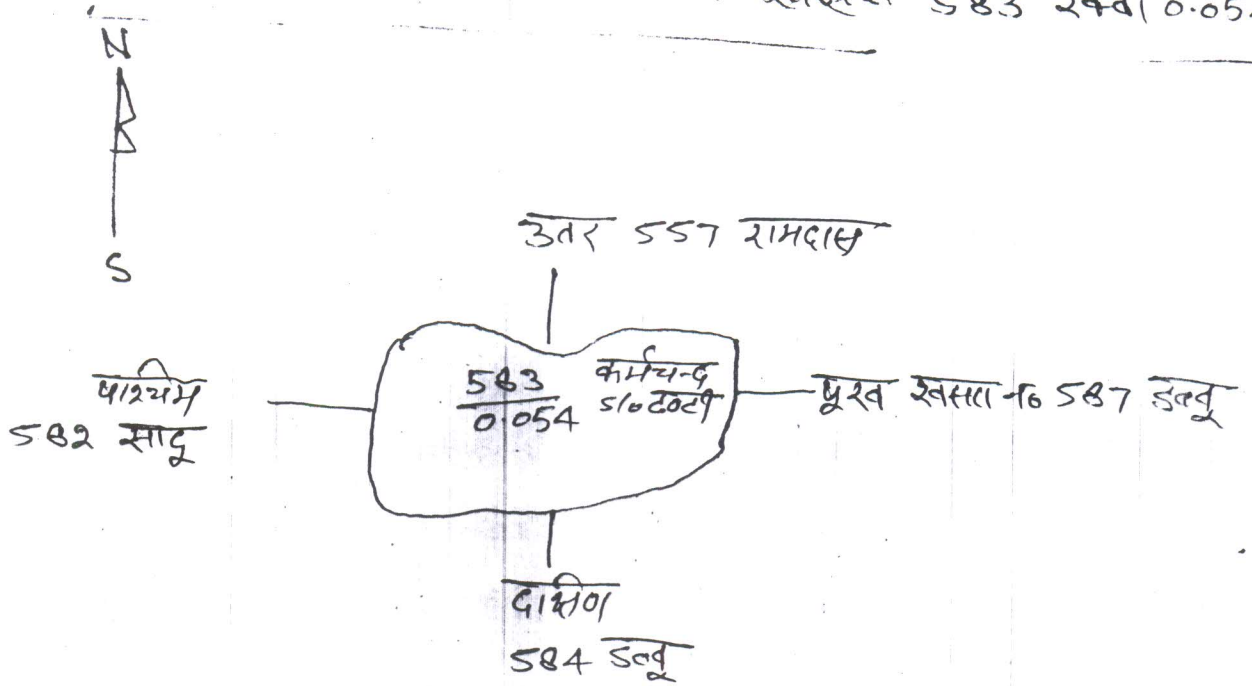 583 रकबा 0.05
N
S
उतर 557 रामदास
पाश्चिम
582 सादू
583
0.054
कर्मचन्द
S/o
पूरव खसरा न० 587
दाक्षिण
584